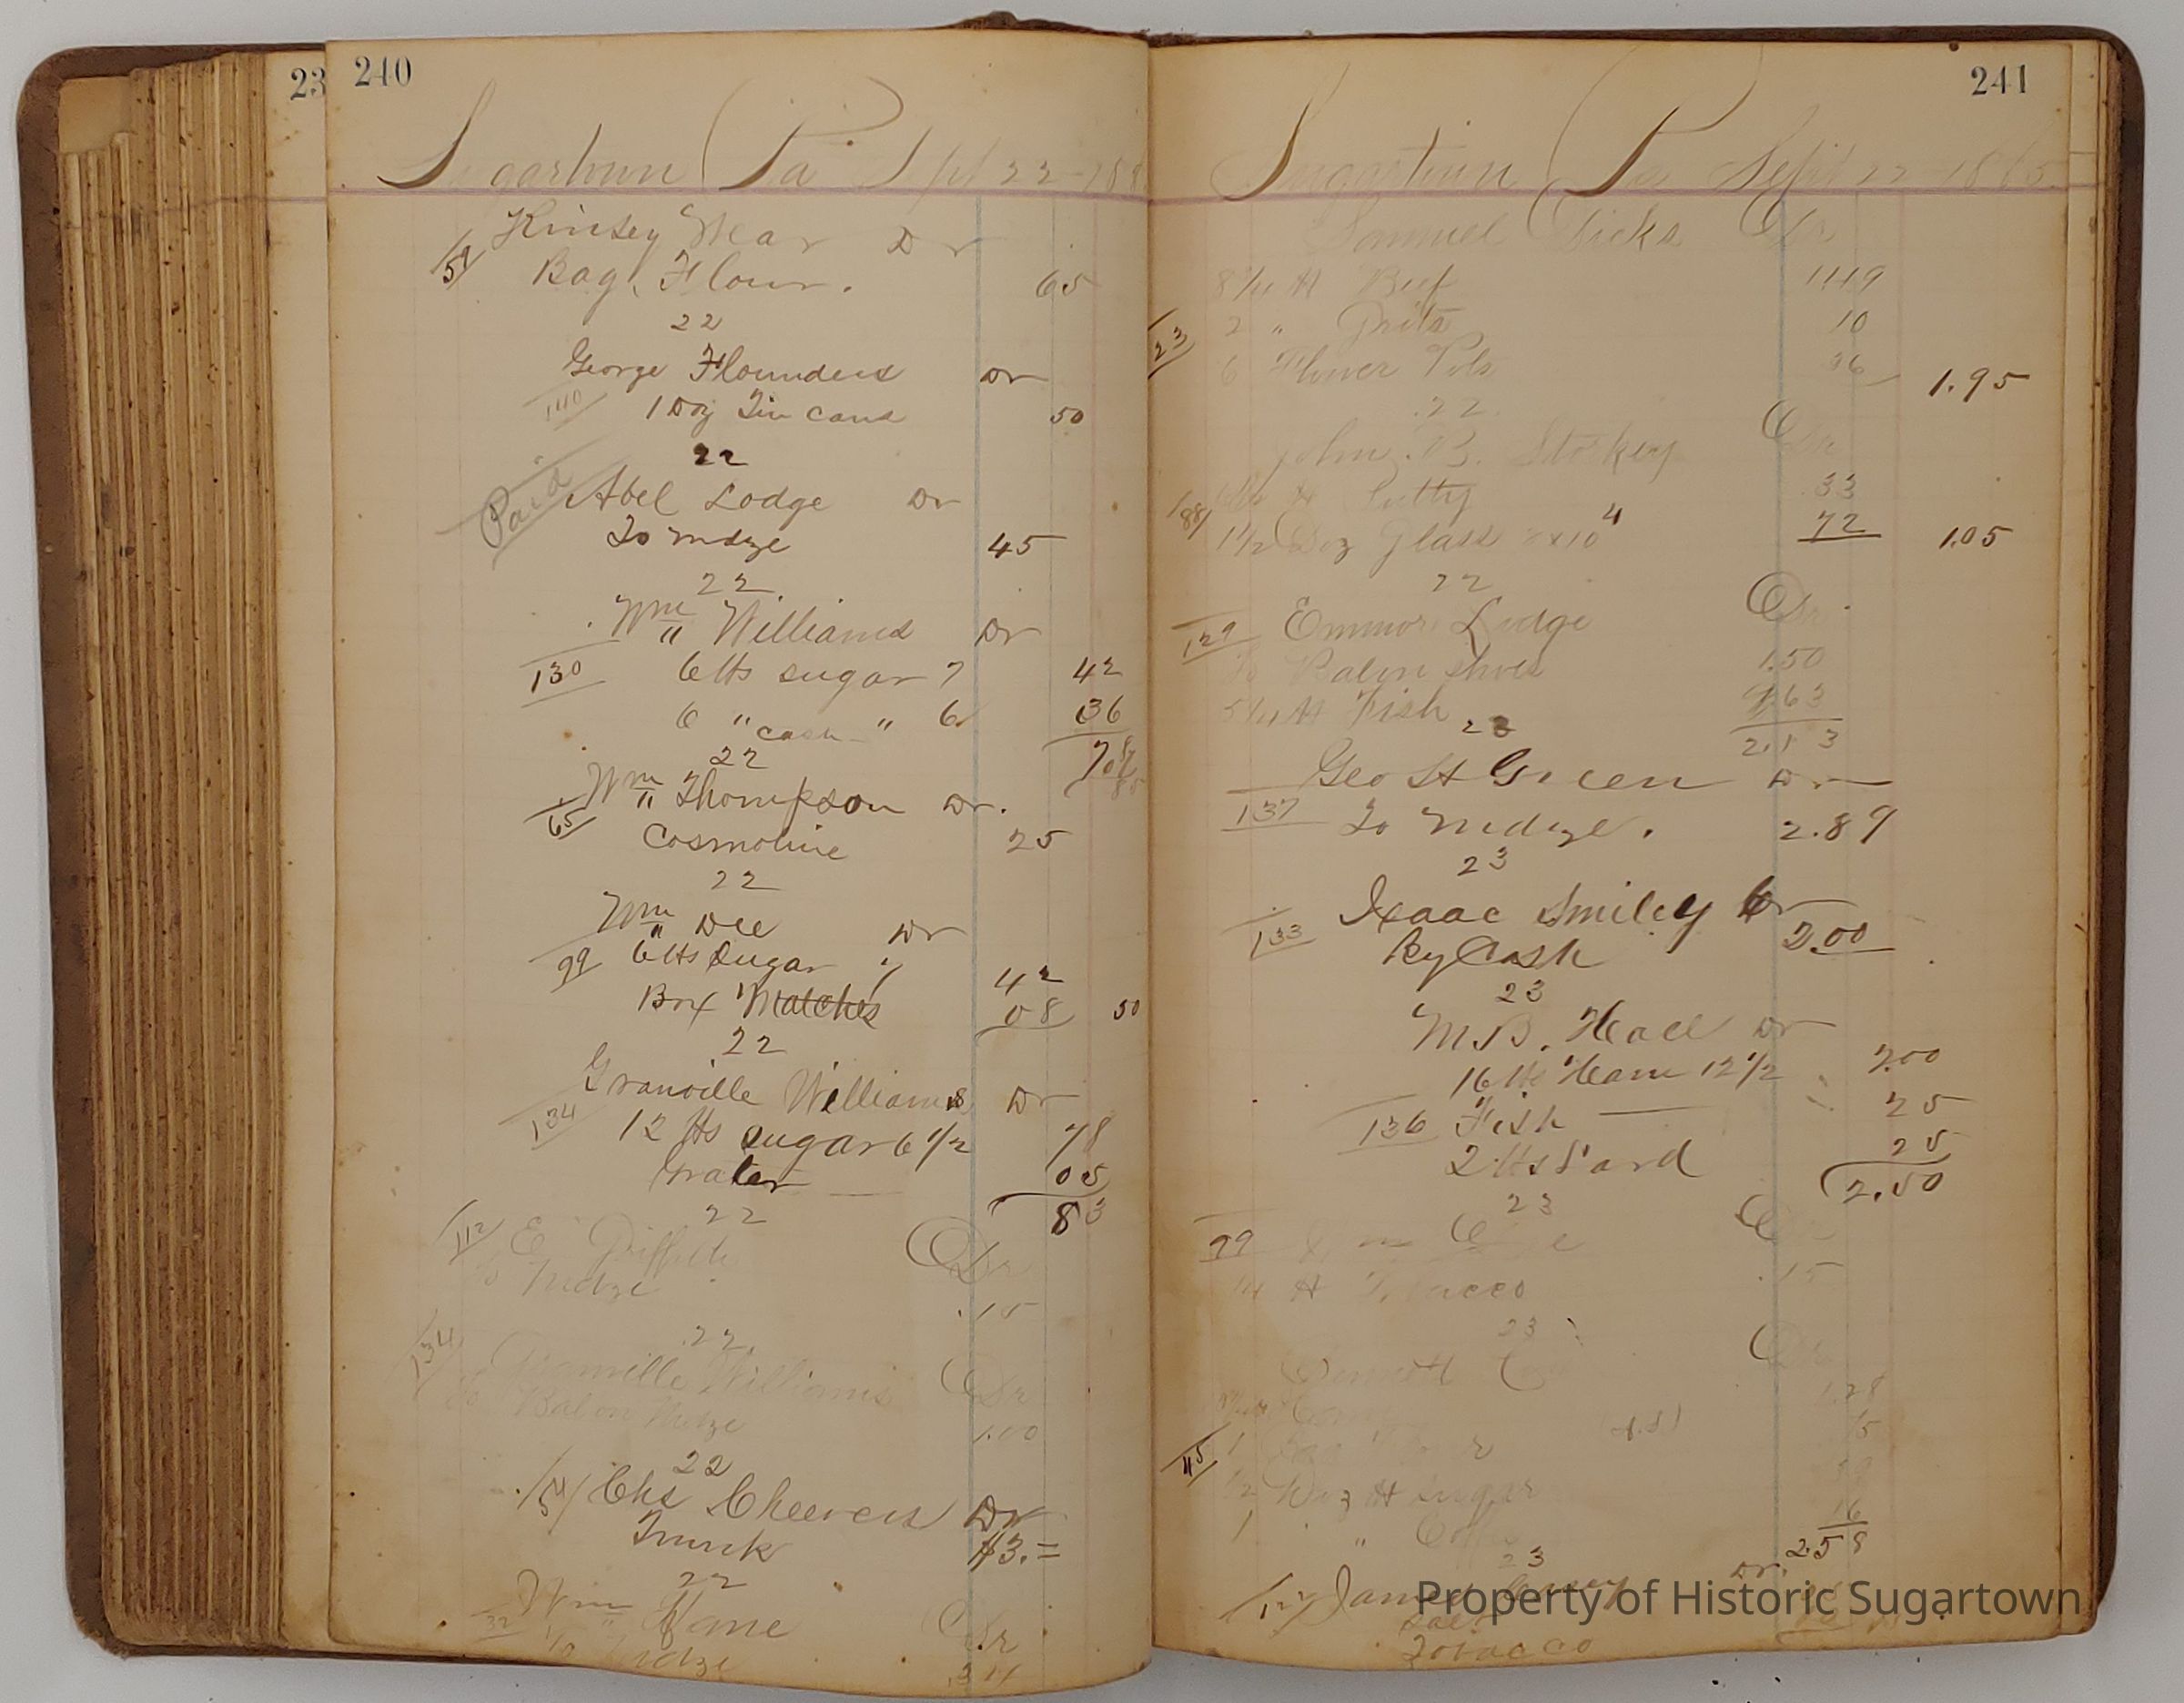 23
240
Sugartown Pa Sept 22 - 188
Kinsey Dr
59
Bag Flour. 65
22
George Flounders Dr
140
1 Doz Tin cans 50
22
Paid
Abel Lodge Dr
To mdze 45
22
Wm Williams Dr
130
6 lbs sugar 7 42
6 " " 6 36
cash
78
22
Wm Thompson Dr.
65
Cosmoline 25
22
Wm Dee Dr
99
6 lbs sugar 7 42
Box Matches 08 50
22
Granville Williams Dr
134
12 lbs sugar 6 1/2 78
Grater 05
83
22
112
E. Griffith Dr
To Mdze .15
22
134
Granville Williams Dr
To Bal on Mdze 1.00
22
54
Chs Cheevers Dr
Trunk $3.=
22
Wm Kane Dr
32
Mdze
241
Sugartown Pa Sept 22 1885
Samuel Dr
Beef
23
2 " Grits 10
6 Flower Pots 36 1.95
22
John B. Dr
Putty 33
188
1 1/2 Doz Glass 72 1.05
22
129
Emmor Lodge Dr.
To Bal on shoes 1.50
Fish 63
2.13
23
Geo H Green Dr
137
To Mdze. 2.89
23
Isaac Smiley Cr
133
By Cash 2.00
23
M.B. Hall Dr
16 lbs Ham 12 1/2 2.00
136
Fish 25
2 lbs Lard 25
2.50
23
99
Tobacco .15
23
Dr
1.28
45
1
1/2 Doz sugar
1 " 16
2.58
23
122
James Dr.
Tobacco
Property of Historic Sugartown